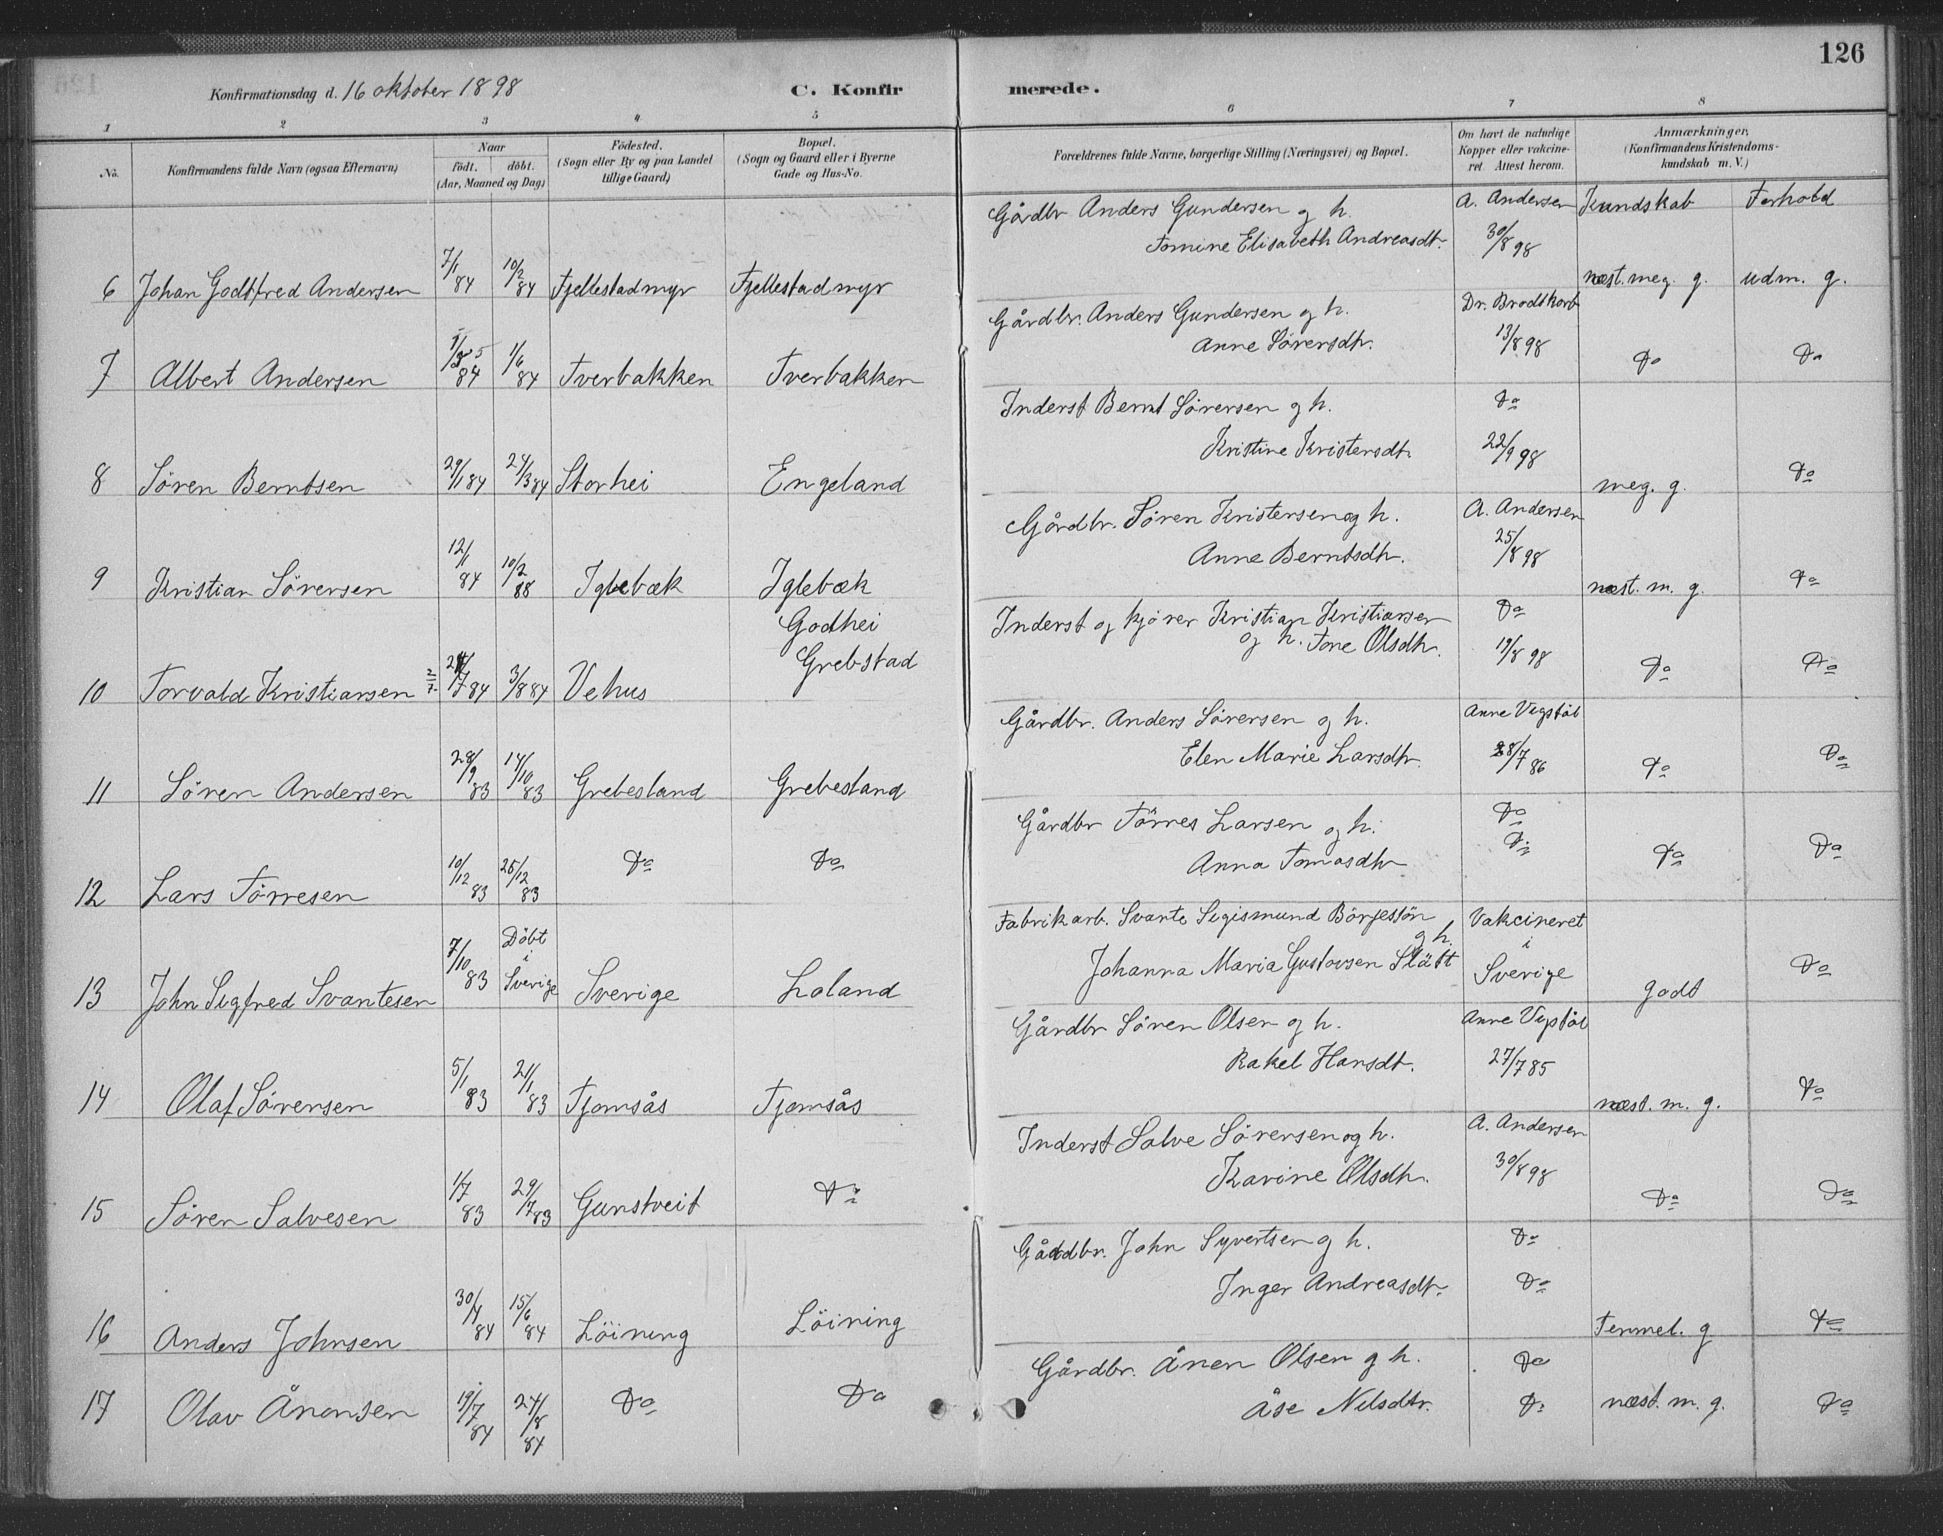 126
Konfirmationsdag d. 16 oktober 1898
C. Konfirmerede.
1 2 3 4 5 6 7 8
No.
Konfirmandens fulde Navn (ogsaa Efternavn)
Naar
födt. döbt.
(Aar, Maaned og Dag)
Födested.
(Sogn eller By og paa Landet
tillige Gaard)
Bopæl.
(Sogn og Gaard eller i Byerne
Gade og Hus-No.
Forældrenes fulde Navne, borgerlige Stilling (Næringsvei) og Bopæl.
Om havt de naturlige
Kopper eller vakcine-
ret. Attest herom.
Anmærkninger,
(Konfirmandens Kristendoms-
kundskab m. V.)
Kundskab Forhold
6 Johan Godtfred Andersen 7/1 84 10/2 84 Fjellestadmyr Fjellestadmyr
Gårdbr Anders Gundersen og h. A. Andersen
Tomine Elisabeth Andreasdt. 30/8 98
næst. meg. g. udm. g.
7 Albert Andersen 84 1/6 84 Tverbakken Tverbakken
Gårdbr. Anders Gundersen og h. Dr. Brodtkorb
Anne Sörensdtr. 13/8 98 Do Do
8 Sören Berntsen 29/1 84 24/3 84 Storhei Engeland
Inderst Bernt Sörensen og h. Do
Kristine Kristensdtr. 22/9 98
meg. g. Do
9 Kristian Sörensen 12/1 84 10/2 88 Iglebæk Iglebæk
Gårdbr. Sören Kristensen og h. A. Andersen
Anne Berntsdtr. 25/8 98
næst. m. g. Do
10 Torvald Kristiansen 2/7 84 3/8 84 Vehus
Godhei
Grebstad
Inderst og kjörer Kristian Kristiansen Do
og h. Tone Olsdtr. 19/8 98 Do Do
11 Sören Andersen 28/9 83 14/10 83 Grebesland Grebesland
Gårdbr. Anders Sörensen og h. Anne Vegstöl
Elen Marie Larsdtr. 28/7 86 Do Do
12 Lars Törresen 10/12 83 26/12 83 Do Do
Gårdbr Törres Larsen og h. Do
Anna Tomasdtr Do Do Do
13 John Sigfred Svantesen 7/10 83 Döbt i Sverige Sverige Loland
Fabrikarb. Svante Sigismund Börjessön og h. Vakcineret
Johanna Maria Gustavsen Slätt i Sverige
godt Do
14 Olaf Sörensen 5/1 83 21/1 83 Tjomsås Tjomsås
Gårdbr Sören Olsen og h. Anne Vegstöl
Rakel Hansdt. 27/7 85
næst. m. g. Do
15 Sören Salvesen 1/7 83 29/7 83 Gunstveit Do
Inderst Salve Sörensen og h. A. Andersen
Karine Olsdtr. 30/8 98 Do Do
16 Anders Johnsen 30/4 84 15/6 84 Löining Löining
Gårdbr. John Syvertsen og h. Do
Inger Andreasdtr. Do
Temmel. g Do
17 Olav Ånensen 19/7 84 24/8 84 Do Do
Gårdbr. Ånen Olsen og h. Do
Åse Nilsdtr. Do næst. m. g. Do